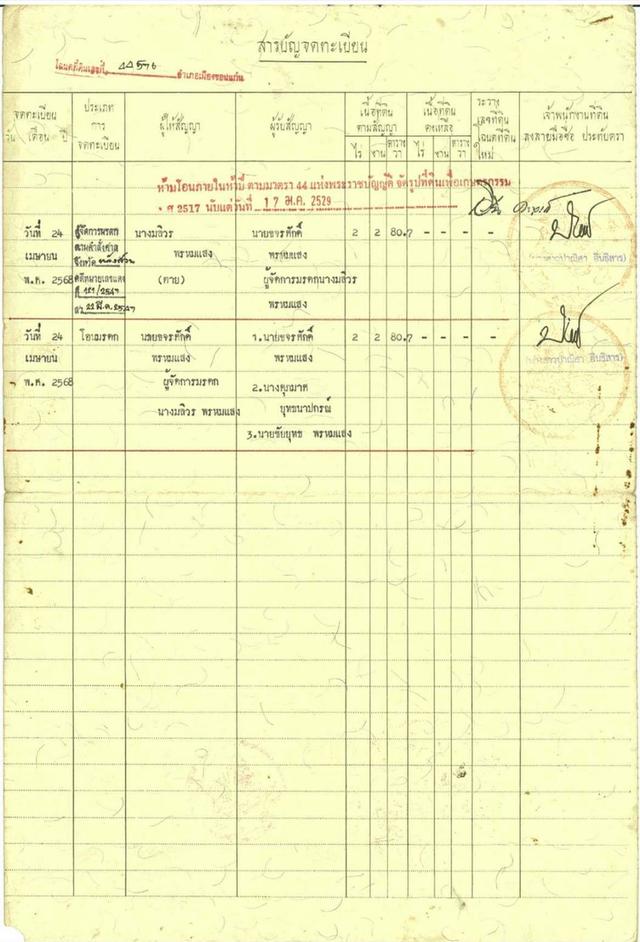 สารบัญจดทะเบียน
โฉนดที่ดินเลขที่ 44576 อำเภอเมืองขอนแก่น
จดทะเบียน
วัน เดือน ปี
ประเภท
การ
จดทะเบียน
ผู้ให้สัญญา
ผู้รับสัญญา
เนื้อที่ดิน
ตามสัญญา
ไร่ งาน ตาราง
วา
เนื้อที่ดิน
คงเหลือ
ไร่ งาน ตาราง
วา
ระวาง
เลขที่ดิน
โฉนดที่ดิน
ใหม่
เจ้าพนักงานที่ดิน
ลงลายมือชื่อ ประทับตรา
ห้ามโอนภายในห้าปี ตามมาตรา 44 แห่งพระราชบัญญัติ จัดรูปที่ดินเพื่อเกษตรกรรม
ศ 2517 นับแต่วันที่ 17 ม.ค. 2529
วันที่ 24 ผู้จัดการมรดก นางมลิวร นายขจรศักดิ์ 2 2 80.7 - - - -
เมษายน ตามคำสั่งศาล พรหมแสง พรหมแสง
จังหวัด
พ.ศ. 2568 คดีหมายเลขแดง (ตาย) ผู้จัดการมรดกนางมลิวร
พรหมแสง
วันที่ 24 โอนมรดก นายขจรศักดิ์ 1.นายขจรศักดิ์ 2 2 80.7 - - - -
เมษายน พรหมแสง พรหมแสง
พ.ศ. 2568 ผู้จัดการมรดก
นางมลิวร พรหมแสง ยุทธนาปกรณ์
3.นายชัยยุทธ พรหมแสง